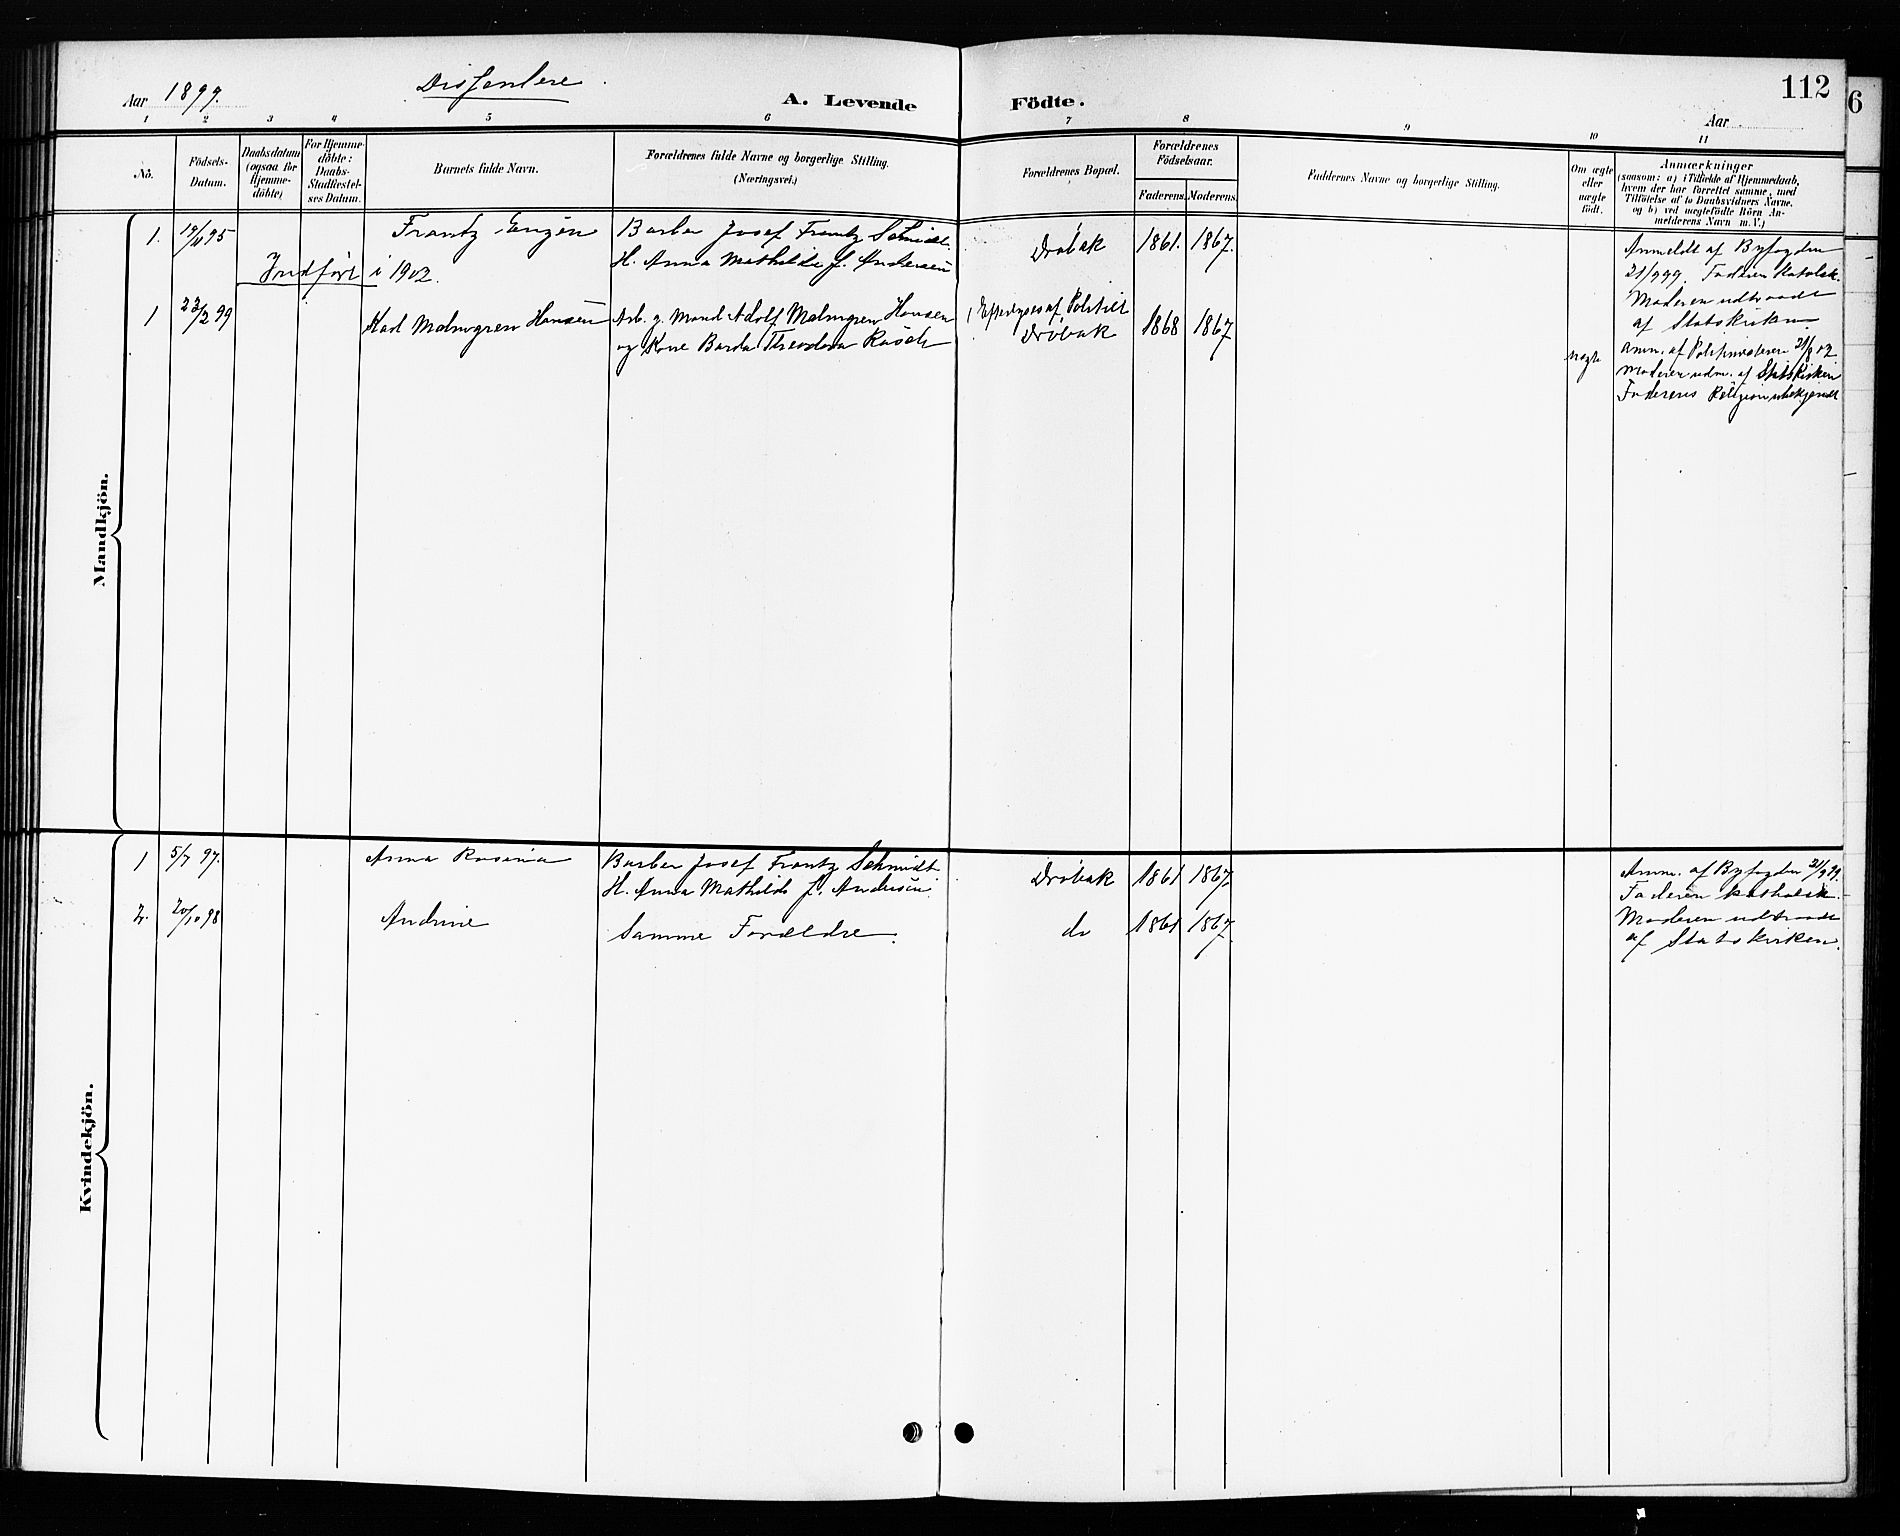 Aar 1899.
Dissentere.
A. Levende
Födte.
112
6
Aar
1 2 3 4 5 6 7 8 9 10 11
No.
Födsels-
Datum.
Daabsdatum
(ogsaa for
Hjemme-
döbte)
For Hjemme-
döbte:
Daabs-
Stadfæstel-
ses Datum.
Barnets fulde Navn.
Forældrenes fulde Navne og borgerlige Stilling.
(Næringsvei.)
Forældrenes Bopæl.
Forældrenes
Födselsaar.
Faderens. Moderens.
Faddernes Navne og borgerlige Stilling.
Om ægte
eller
uægte
födt.
Anmærkninger
(saasom: a) i Tilfælde af Hjemmedaab,
hvem der har forrettet samme, med
Tilföielse af to Daabsvidners Navne.
og b) ved uægtefödte Börn An-
melderens Navn m. V.)
Mandkjön.
1. 95 Frantz Eugen Barber Josef Frantz Schmidt. Dröbak 1861. 1867.
H. Anna Mathilde f. Andersen
Indfört i 1902.
Anmeldt af Byfogden
21/9 99. Faderen katolsk.
Moderen udtraadt
af Statskirken.
1 23/2 99 Karl Malmgren Hansen Arb. g. Mand Adolf Malmgren Hansen (Efterlyses af Politiet 1868 1867
og Kone Barda Theodora Rasch Dröbak
Anm. af Politimesteren
Moderen udm. af Statskirken
Faderens Religion ubekjendt
Kvindekjön.
1 5/7 97. Anna Rosina Barber Josef Frantz Schmidt Dröbak 1861 1867.
H. Anna Mathilde f. Andersen.
2. 20/10 98 Andrine Samme Forældre. do 1861 1867.
Anm. af Byfogden 21/9 99.
Faderen katholsk.
Moderen udtraadt
af Statskirken.